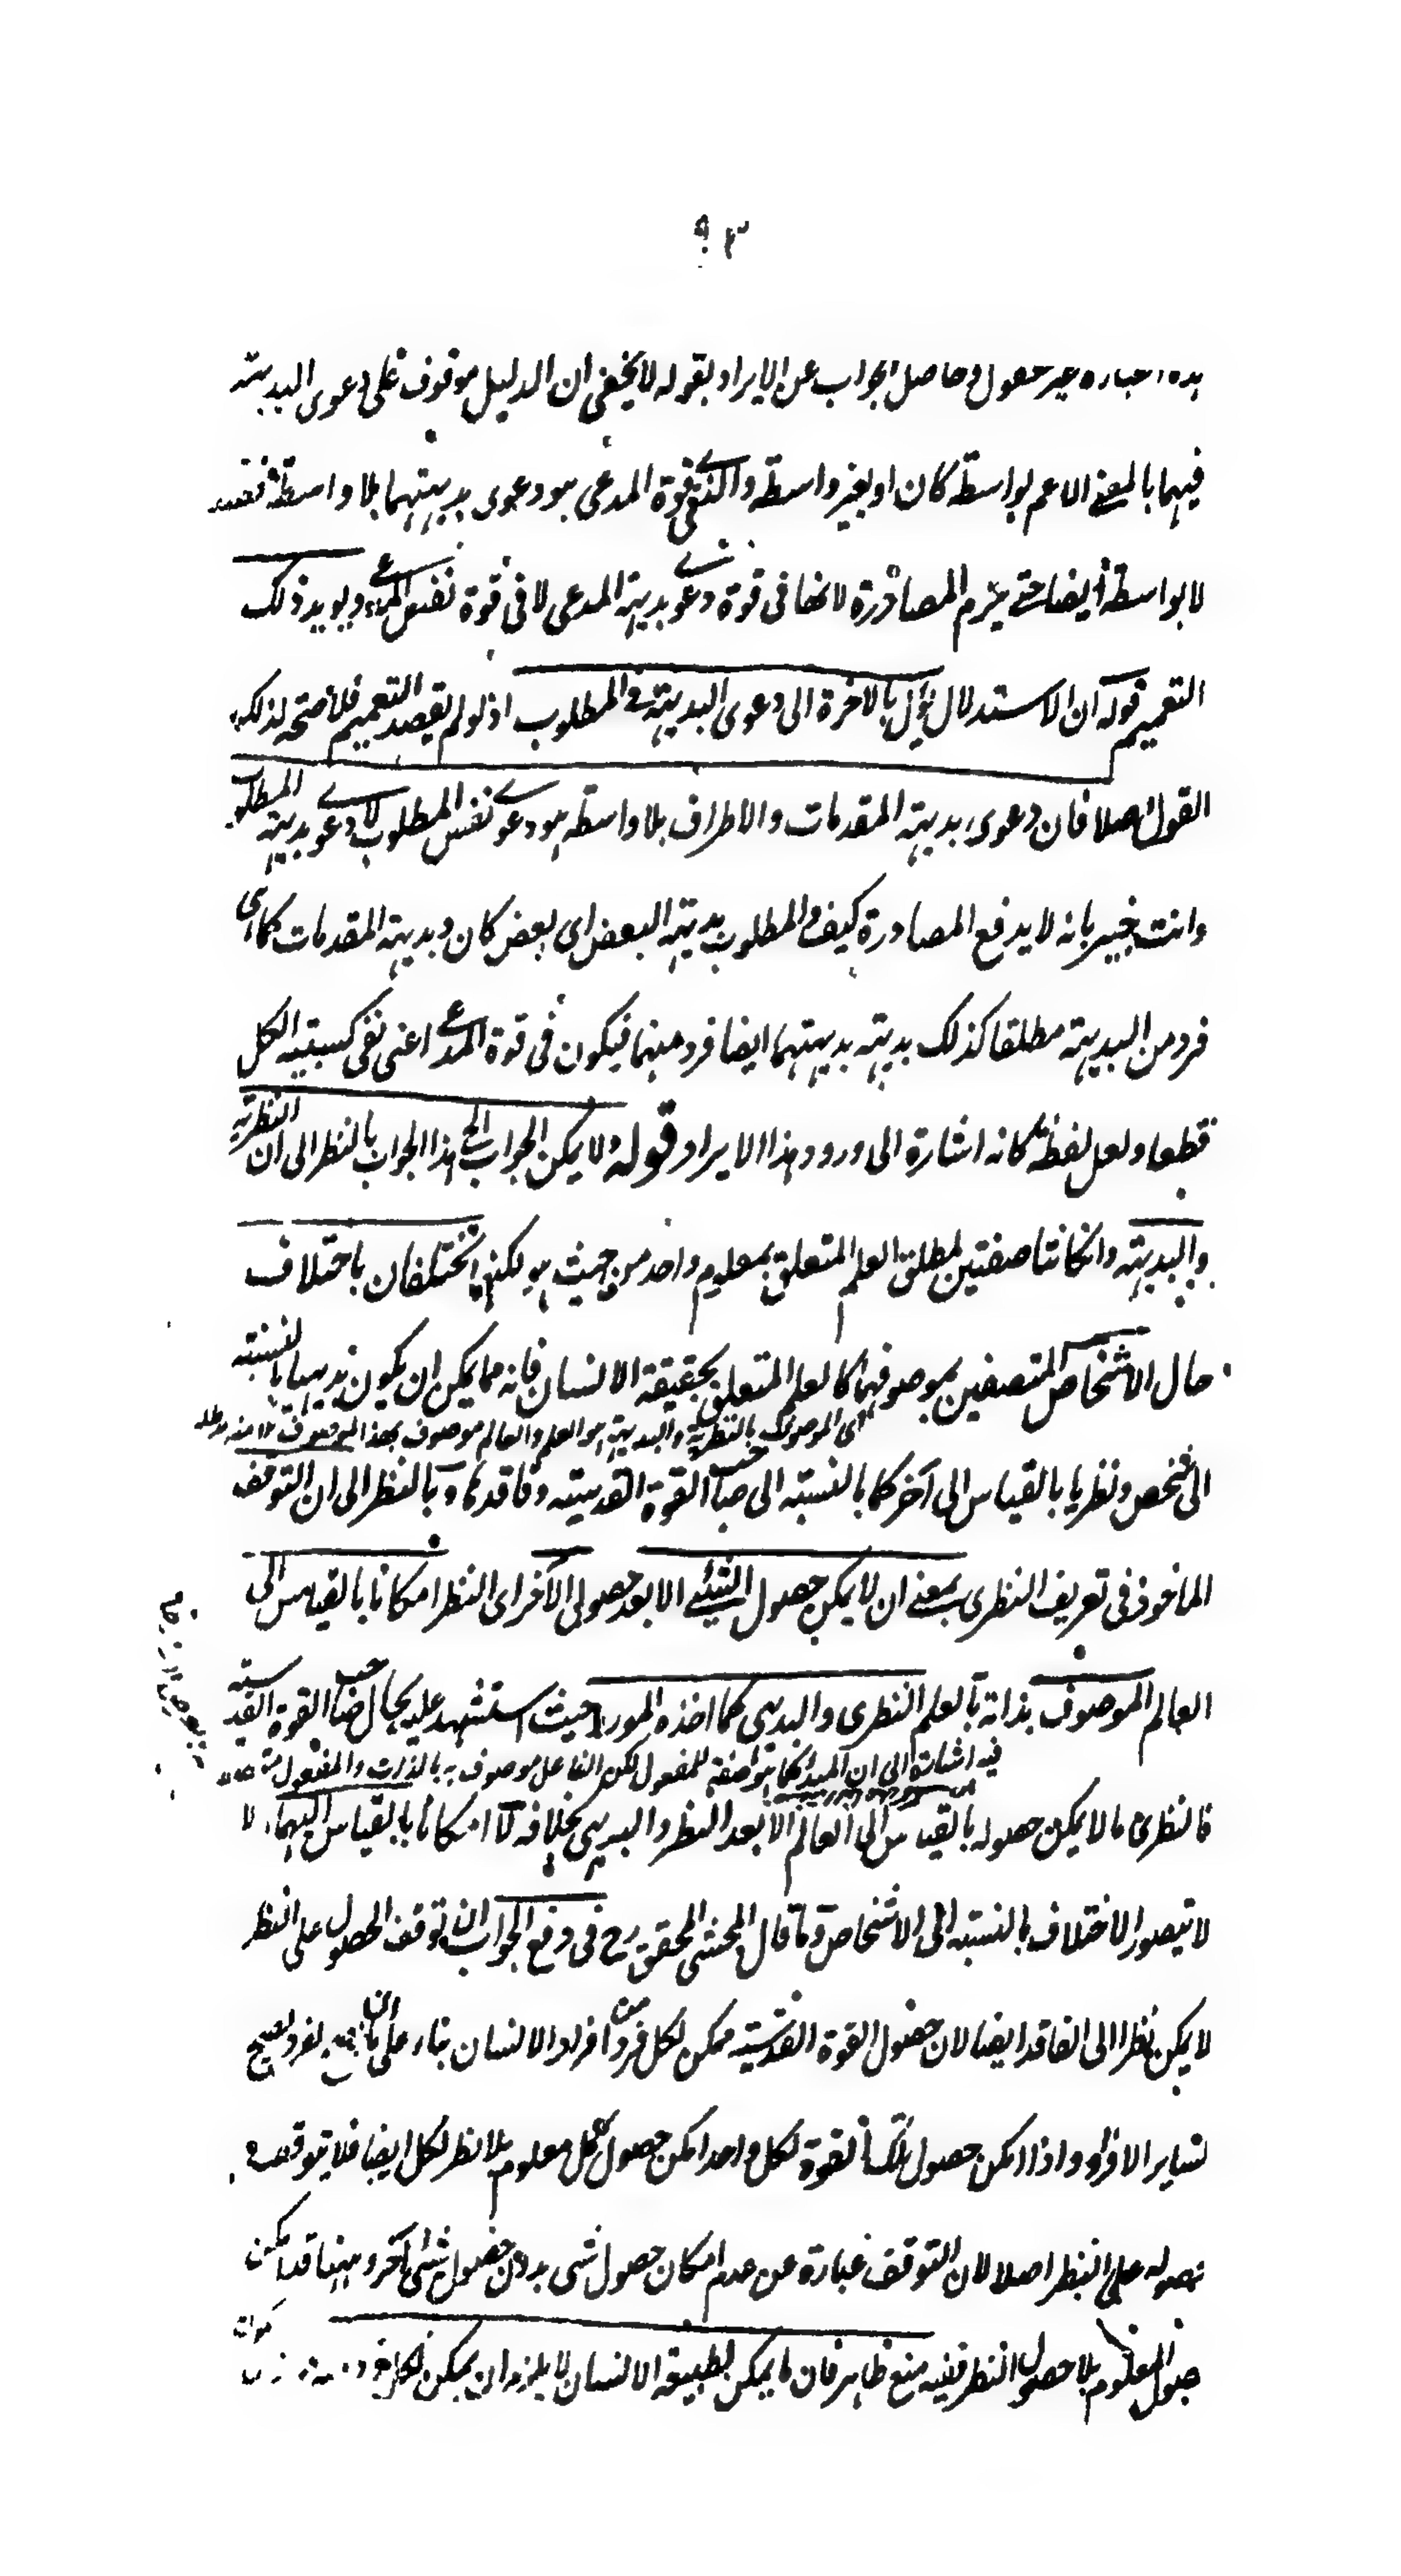 ٩٣
غير معقول وحاصل الجواب عن الايراد بقوله لا يخفى ان الدليل موقوف على دعوى البديهة
فيهما بالمعنى الاعم بواسطة كان او بغير واسطة والذى فى قوة المدعى هو دعوى بديهتهما بلا واسطة
لا بواسطة ايضا حتى يلزم المصادرة لانها فى قوة دعوى بديهة المدعى لا فى قوة نفس المدعى ويويد ذلك
التعميم قوله ان الاستدلال يؤل بالاخرة الى دعوى البديهة فى المطلوب اذ لو لم يقصد التعميم فلا صحة لذلك
القول اصلا فان دعوى بديهة المقدمات والاطراف بلا واسطة هو دعوى نفس المطلوب لا دعوى بديهة المطلوب
وانت خبير بانه لا يدفع المصادرة كيف والمطلوب بديهة البعض اى بعض كان وبديهة المقدمات كما هى
فرد من البديهة مطلقا كذلك بديهة بديهتهما ايضا فرد منهما فيكون فى قوة المدعى اعنى نفى كسبية الكل
قطعا ولعل لفظة كانه اشارة الى ورود هذا الايراد قوله ولا يمكن الجواب الخ هذا الجواب بالنظر الى ان النظرية
والبديهة وانكانتا صفتين لمطلق العلم المتعلق بمعلوم واحد من حيث هو لكنهما تختلفان باختلاف
حال الاشخاص المتصفين بموصوفهما كالعلم المتعلق بحقيقة الانسان فانه مما يمكن ان يكون بديهيا بالنسبة
اى الموصوف بالنظرية والبديهة هو العلم والعالم موصوف بهذا الموصوف ١٢ منه
الى شخص ونظريا بالقياس الى آخر كما بالنسبة الى صاحب القوة القدسية وفاقدها وبالنظر الى ان التوقف
الماخوذ فى تعريف النظرى بمعنى ان لا يمكن حصول الشيئ الا بعد حصول الآخر اى النظر امكانا بالقياس الى
العالم الموصوف بذاته بالعلم النظرى والبديهى كما اخذه المورد حيث استشهد عليه بحال صاحب القوة القدسية
فيه اشارة الى ان المبدأ كما هو صفة للمفعول لكن الفاعل موصوف به بالذات والمفعول
فالنظرى ما لا يمكن حصوله بالقياس الى العالم الا بعد النظر والبديهى بخلافه لا امكانا بالقياس اليهما لا
لا يتصور الاختلاف بالنسبة الى الاشخاص وما قال المحشى المحقق رح فى دفع الجواب ان توقف الحصول على النظر
لا يمكن نظرا الى الفاقد ايضا لان حصول القوة القدسية ممكن لكل فرد من افراد الانسان بناء على ان لفرد يصح
لساير الافراد واذا امكن حصول تلك القوة لكل واحد امكن حصول كل معلوم بلا نظر لكل ايضا فلا يتوقف
حصوله على النظر اصلا لان التوقف عبارة عن عدم امكان حصول شى بدون حصول شى آخر وههنا قد امكن
حصول المعلوم بلا حصول النظر ففيه منع ظاهر فان ما يمكن لطبيعة الانسان لا يلزم ان يمكن لكل فرد